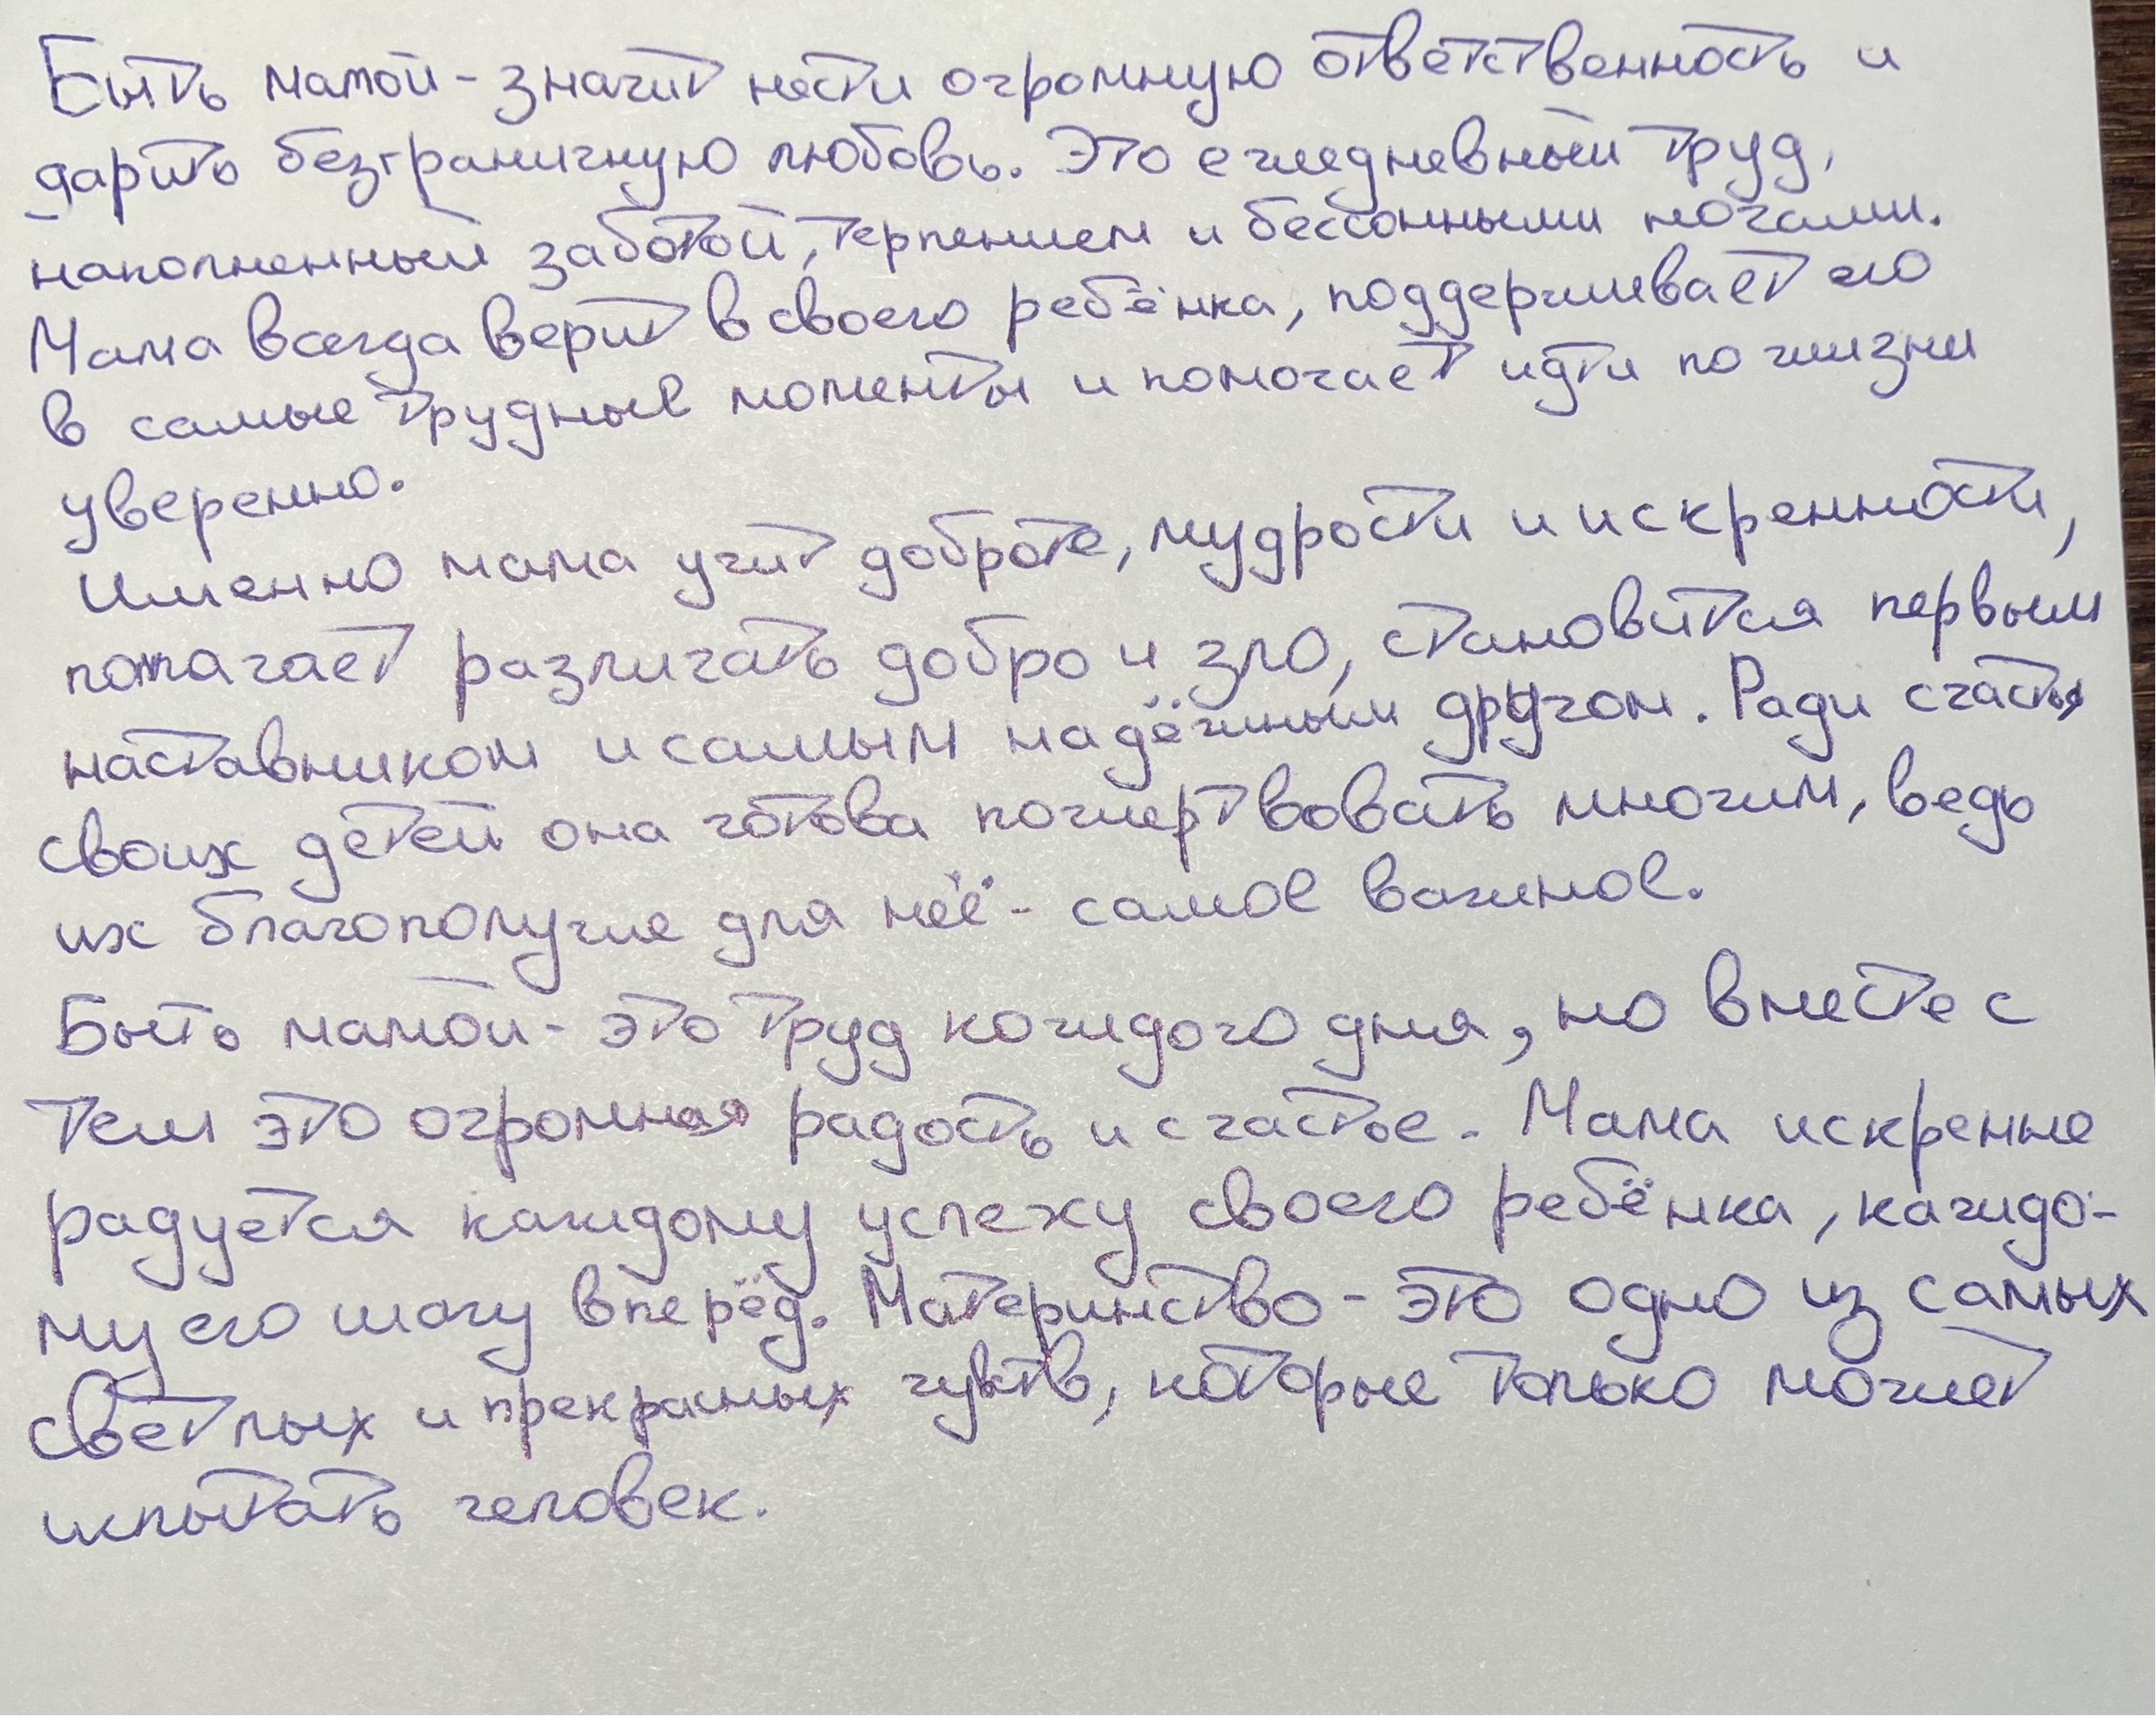 Быть мамой - значит нести огромную ответственность и
дарить безграничную любовь. Это ежедневный труд,
наполненный заботой, терпением и бессонными ночами.
Мама всегда верит в своего ребёнка, поддерживает его
в самые трудные моменты и помогает идти по жизни
уверенно.
Именно мама учит доброте, мудрости и искренности,
помагает различать добро и зло, становится первым
наставником и самым надёжным другом. Ради счастья
своих детей она готова пожертвовать многим, ведь
их благополучие для неё - самое важное.
Быть мамой - это труд каждого дня, но вместе с
тем это огромная радость и счастье. Мама искренне
радуется каждому успеху своего ребёнка, каждо-
му его шагу вперёд. Материнство - это одно из самых
светлых и прекрасных чувств, которые только может
испытать человек.